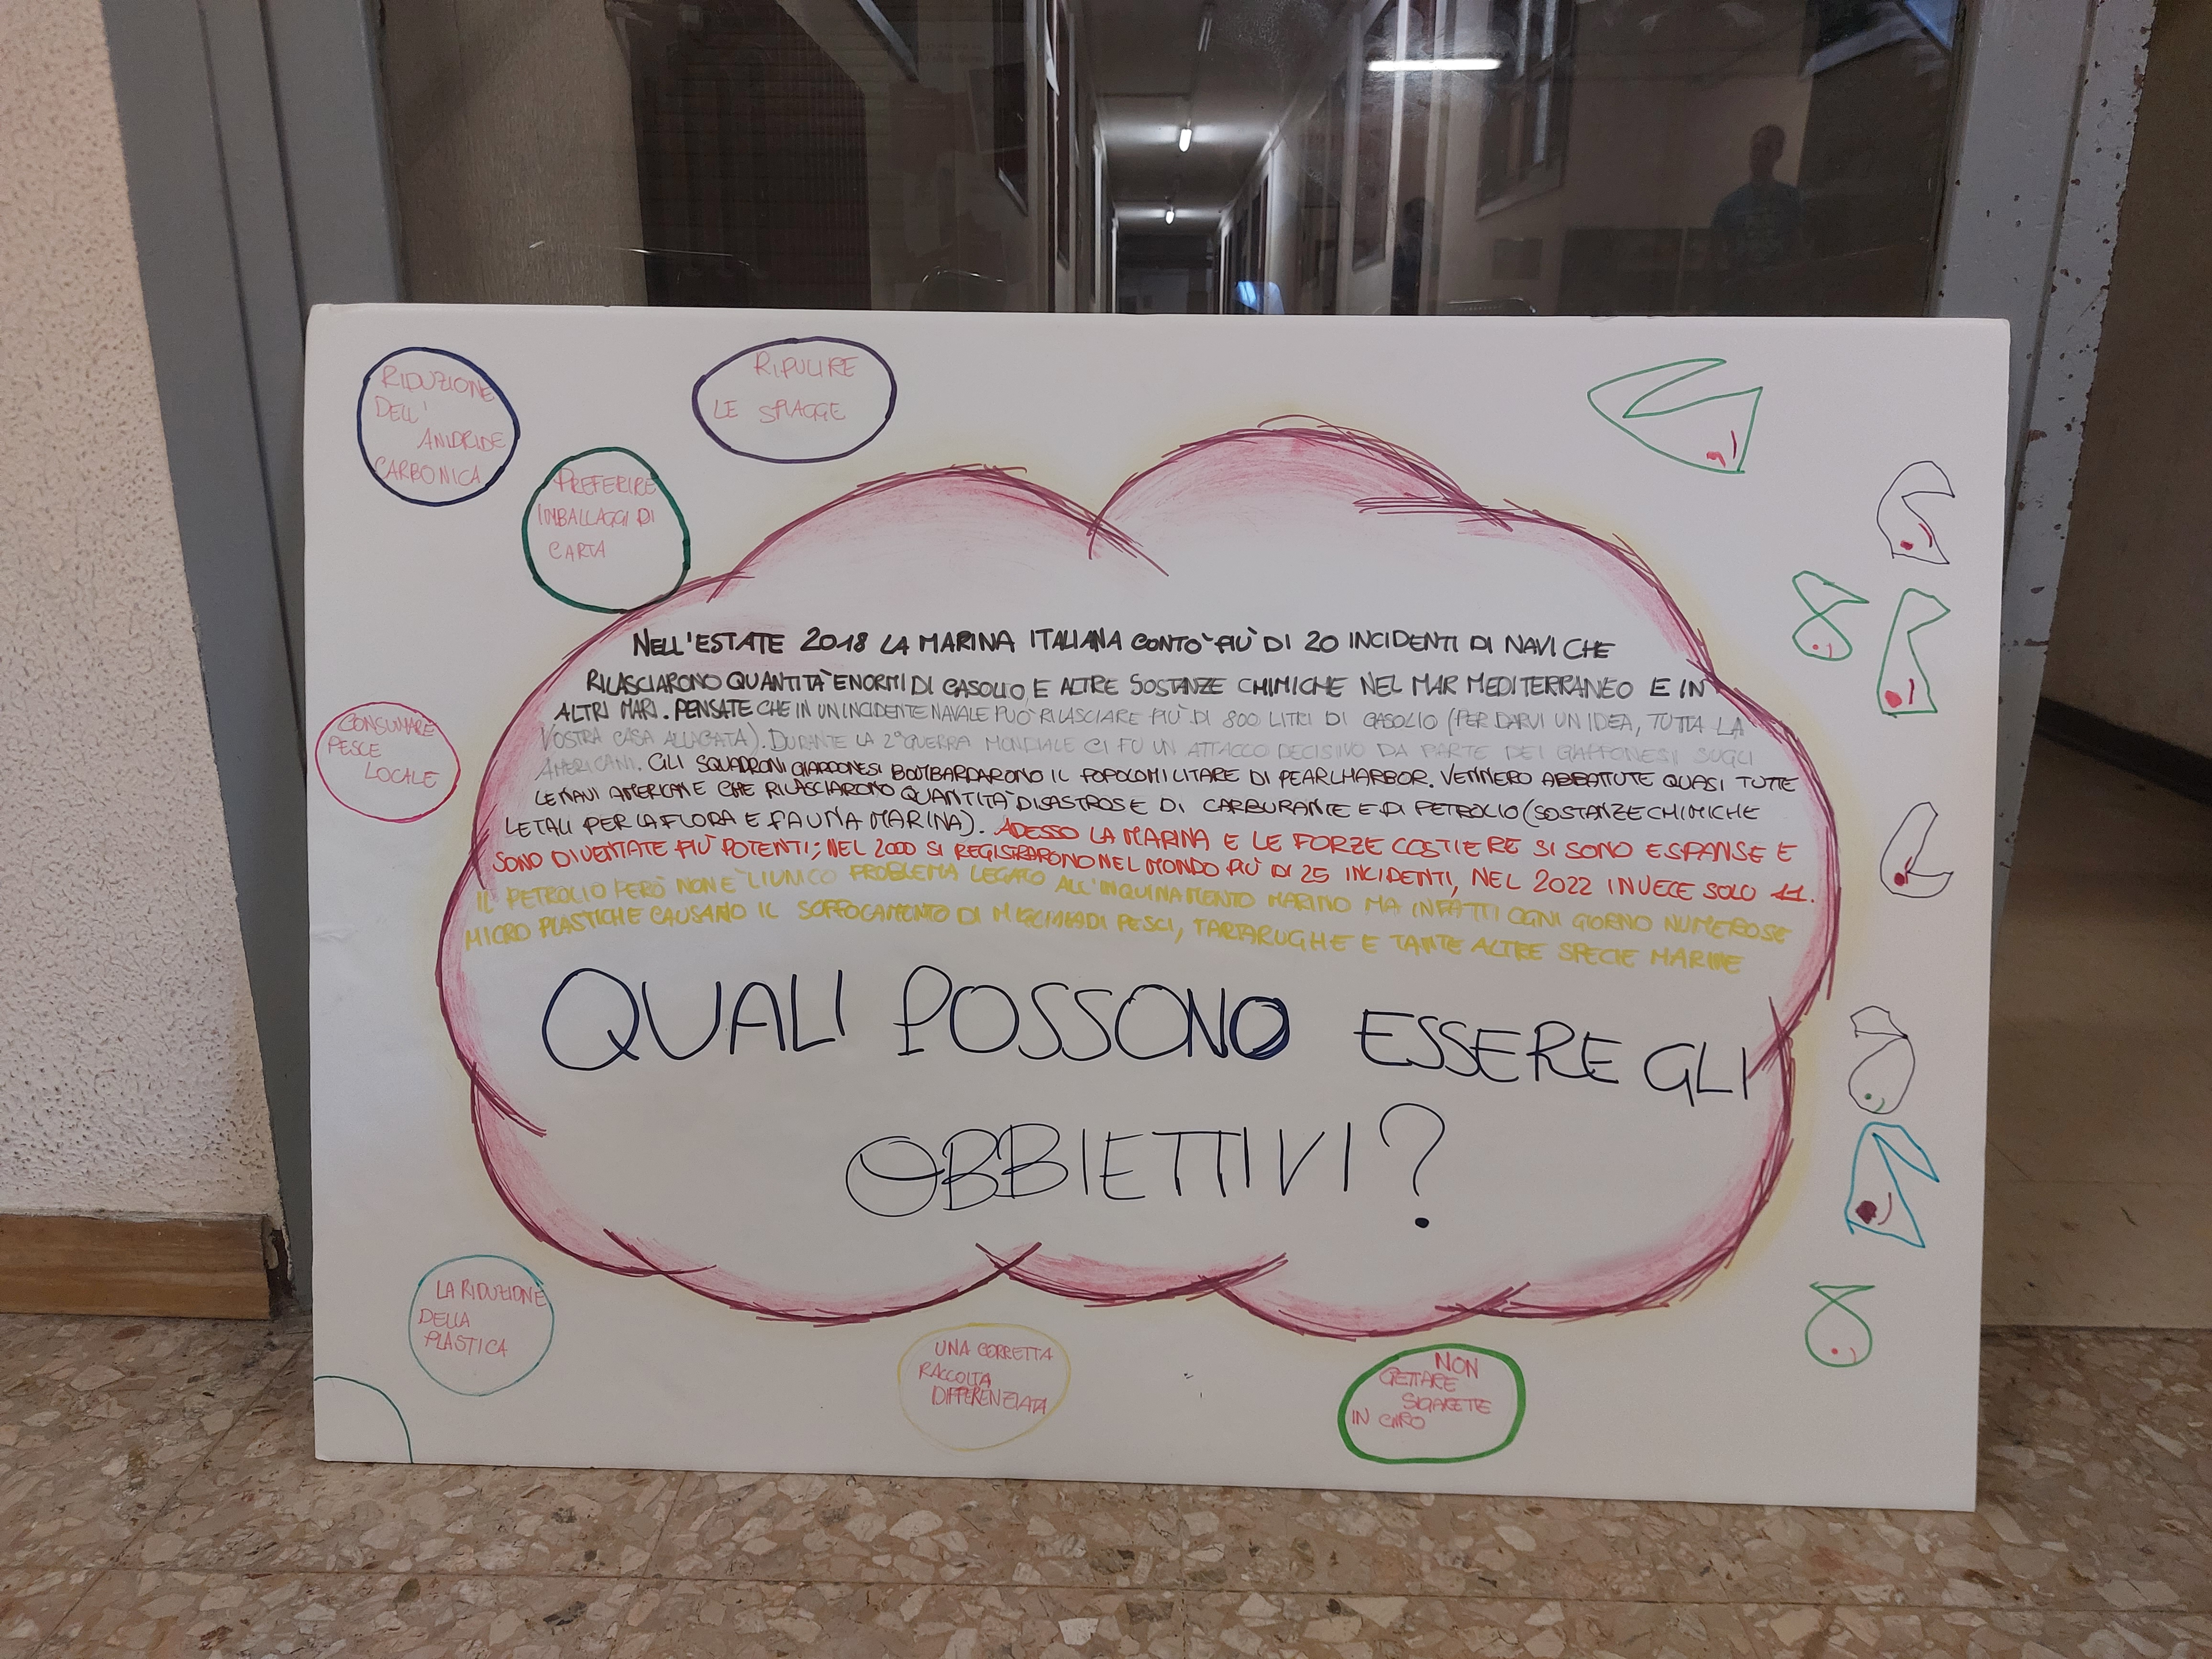 RIDUZIONE
DELL'
ANIDRIDE
CARBONICA
RIPULIRE
LE SPIAGGE
PREFERIRE
IMBALLAGGI DI
CARTA
CONSUMARE
PESCE
LOCALE
NELL'ESTATE 2018 LA MARINA ITALIANA CONTO' PIÙ DI 20 INCIDENTI DI NAVI CHE
RILASCIARONO QUANTITÀ ENORMI DI GASOLIO E ALTRE SOSTANZE CHIMICHE NEL MAR MEDITERRANEO E IN
ALTRI MARI. PENSATE CHE IN UN INCIDENTE NAVALE PUÒ RILASCIARE PIÙ DI 800 LITRI DI GASOLIO (PER DARVI UN IDEA, TUTTA LA
VOSTRA CASA ALLAGATA). DURANTE LA 2° GUERRA MONDIALE CI FU UN ATTACCO DECISIVO DA PARTE DEI GIAPPONESI SUGLI
AMERICANI. GLI SQUADRONI GIAPPONESI BOMBARDARONO IL POPOLO MILITARE DI PEARLHARBOR. VENNERO ABBATTUTE QUASI TUTTE
LE NAVI AMERICANE CHE RILASCIARONO QUANTITÀ DISASTROSE DI CARBURANTE E DI PETROLIO (SOSTANZE CHIMICHE
LETALI PER LA FLORA E FAUNA MARINA). ADESSO LA MARINA E LE FORZE COSTIERE SI SONO ESPANSE E
SONO DIVENTATE PIÙ POTENTI; NEL 2000 SI REGISTRARONO NEL MONDO PIÙ DI 25 INCIDENTI, NEL 2022 INVECE SOLO 11.
IL PETROLIO PERÒ NON È L'UNICO PROBLEMA LEGATO ALL'INQUINAMENTO MARINO MA INFATTI OGNI GIORNO NUMEROSE
MICRO PLASTICHE CAUSANO IL SOFFOCAMENTO DI MIGLIAIA DI PESCI, TARTARUGHE E TANTE ALTRE SPECIE MARINE
QUALI POSSONO ESSERE GLI
OBBIETTIVI?
LA RIDUZIONE
DELLA
PLASTICA
UNA CORRETTA
RACCOLTA
DIFFERENZIATA
NON
GETTARE
SIGARETTE
IN GIRO